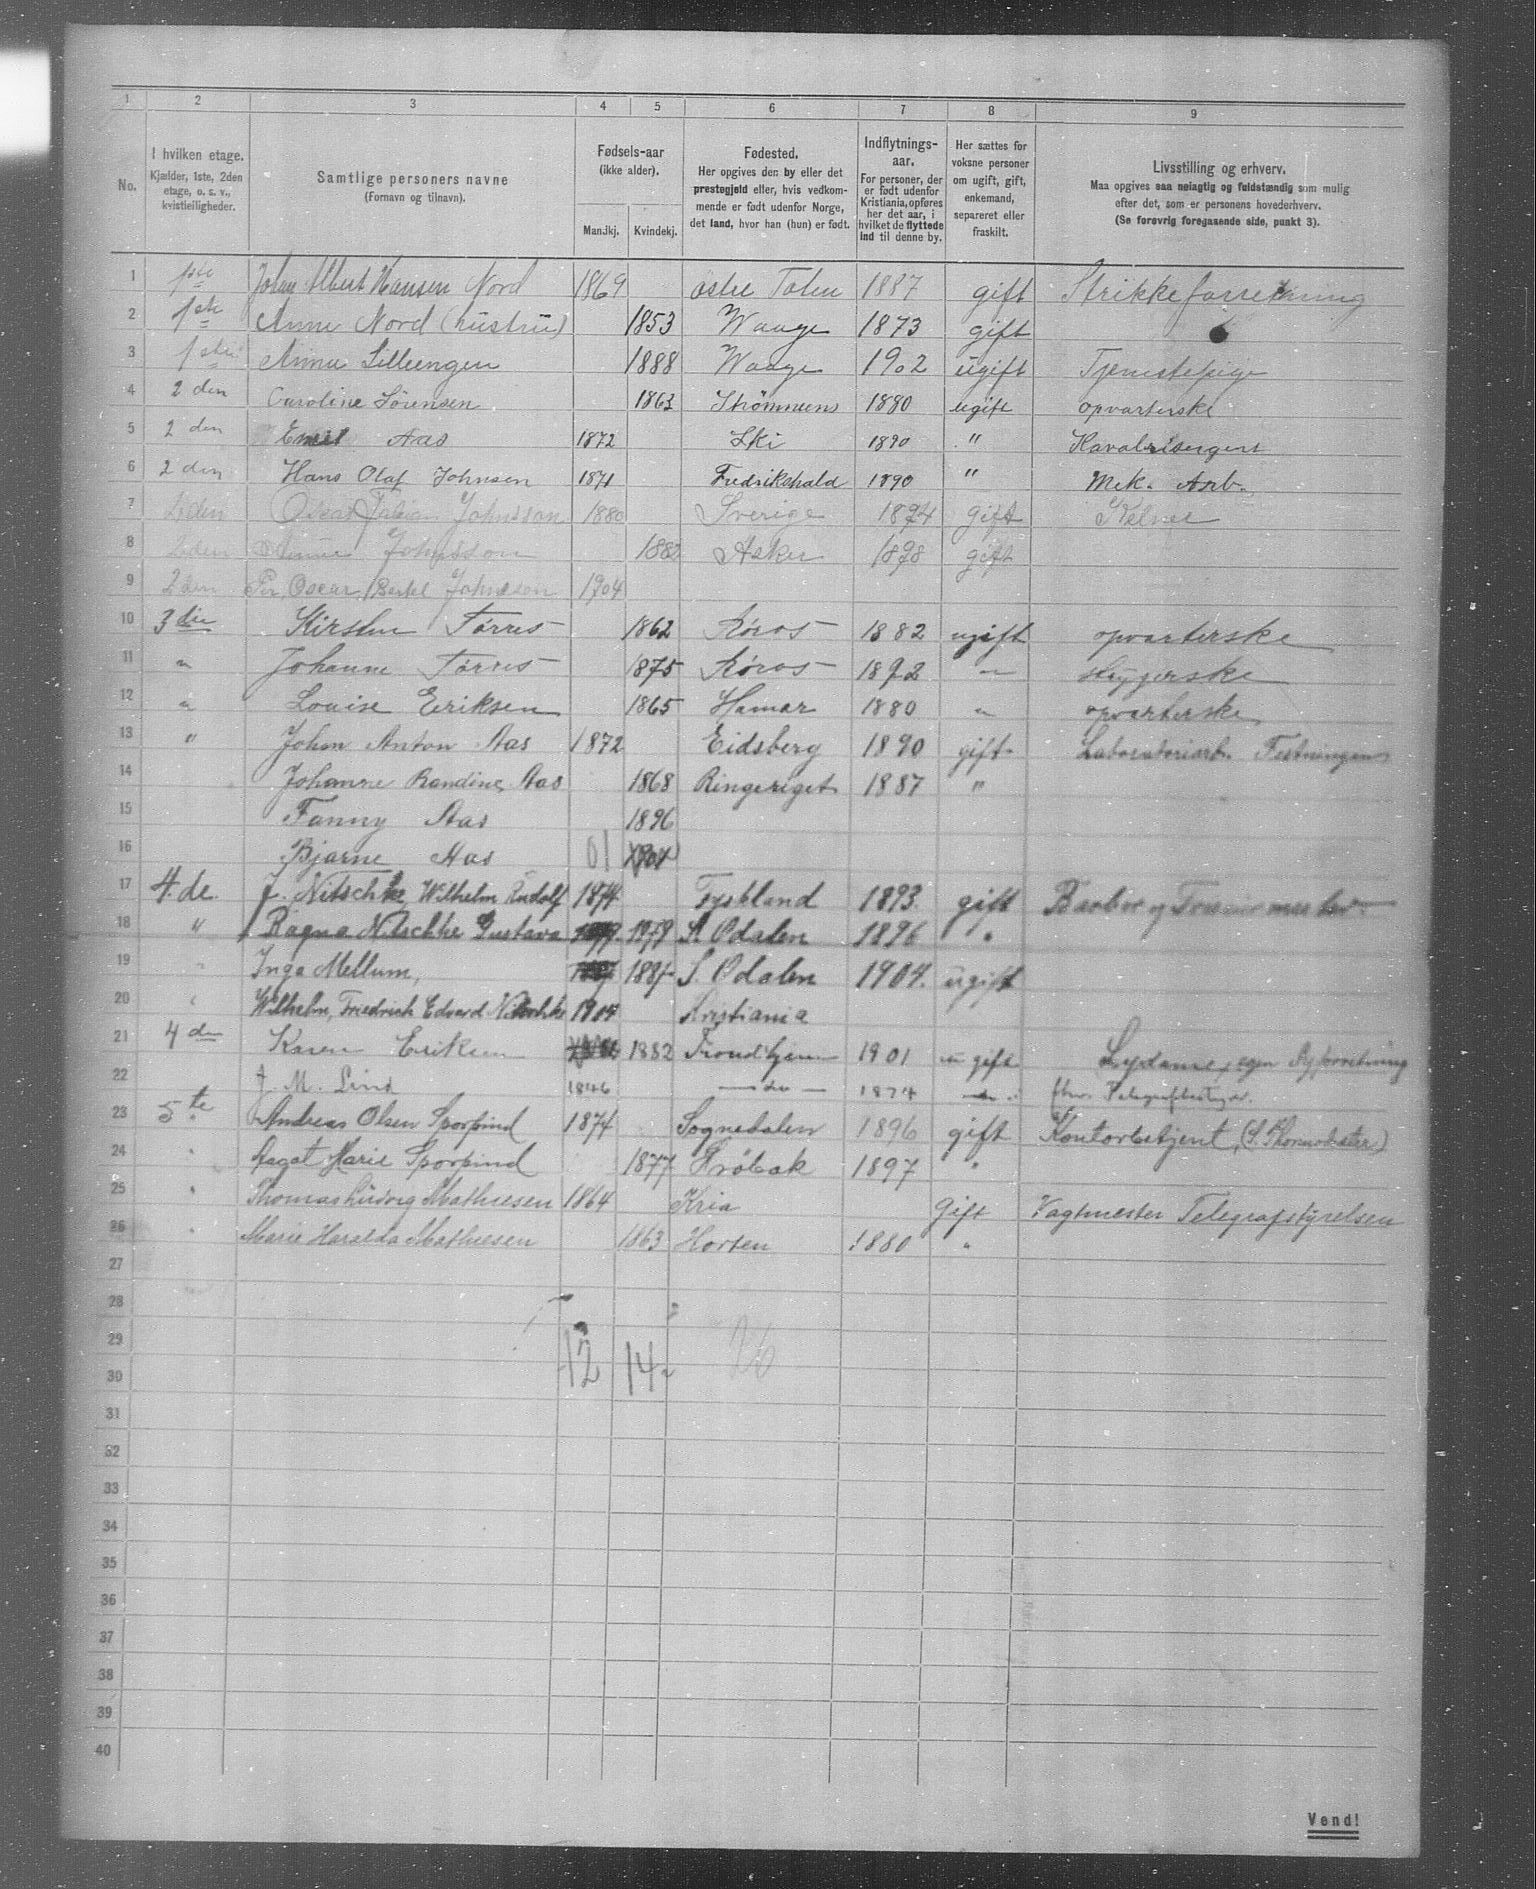 1 2 3 4 5 6 7 8 9
No.
I hvilken etage.
Kjælder, 1ste, 2den
etage, o. s. v.,
kvistleiligheder.
Samtlige personers navne
(Fornavn og tilnavn).
Fødsels-aar
(ikke alder).
Mandkj. Kvindekj.
Fødested.
Her opgives den by eller det
prestegjeld eller, hvis vedkom-
mende er født udenfor Norge,
det land, hvor han (hun) er født.
Indflytnings-
aar.
For personer, der
er født udenfor
Kristiania, opføres
her det aar, i
hvilket de flyttede
ind til denne by.
Her sættes for
voksne personer
om ugift, gift,
enkemand,
separeret eller
fraskilt.
Livsstilling og erhverv.
Maa opgives saa nøiagtig og fuldstændig som mulig
efter det, som er personens hovederhverv.
(Se forøvrig foregaaende side, punkt 3).
1 1ste Johan Albert Hansen Nord 1869 østre Toten 1887 gift Strikkeforretning
2 1ste Anne Nord (hustru) 1853 Waage 1873 gift
3 1ste Anna Lilleengen 1888 Waage 1902 ugift Tjenestepige
4 2den Caroline Sørensen 1863 Strømmen 1880 ugift opvarterske
5 2den Emil Aas 1872 Ski 1890 " Kavalerisergent
6 2den Hans Olaf Johnsen 1871 Fredrikshald 1890 " Mek. Arb.
7 2den Oscar Johnsson 1880 Sverige 1894 gift Kelner
8 2den Anne Johnsson 1882 Asker 1898 gift
9 2den Per Oscar Bertel Johnsson 1904
10 3die Kirsten Tørres 1862 Røros 1882 ugift opvarterske
11 " Johanne Tørres 1875 Røros 1892 " strygerske
12 " Louise Eriksen 1865 Hamar 1880 " opvarterske
13 " Johan Anton Aas 1872 Eidsberg 1890 gift Laboratoriarb. Festningen
14 Johanne Randine Aas 1868 Ringeriget 1887 "
15 Fanny Aas 1896
16 Bjarne Aas 01
17 4de. J. Nitschke Wilhelm Rudolf 1874 Tyskland 1893. gift Barber og Friseurmester
18 " Ragna Nitschke Gustava 1879 S. Odalen 1896 "
19 " Inga Mellum, 188 S. Odalen 1904. ugift
20 " Wilhelm, Friedrich Edvard Nitschke 1904 Kristiania
21 4de Karen Eriksen 1882 Trondhjem 1901 ugift Sydame, egen Syforretning
22 J. M. Lind 1846 — do — 1874 — " — fhv. Telegrafbestyrer.
23 5te Andreas Olsen Sporpind 1874 Sognedalen 1896 gift Kontorbetjent,
24 " Aagot Marie Sporpind 1877 Drøbak 1897 "
25 " Thomas Ludvig Mathiesen 1864 Kria Gift Vagtmester Telegrafstyrelsen
26 " Marie Haralda Mathiesen 1863 Horten 1880 "
27
28
29
12 14 26
30
31
32
33
34
35
36
37
38
39
40
Vend!